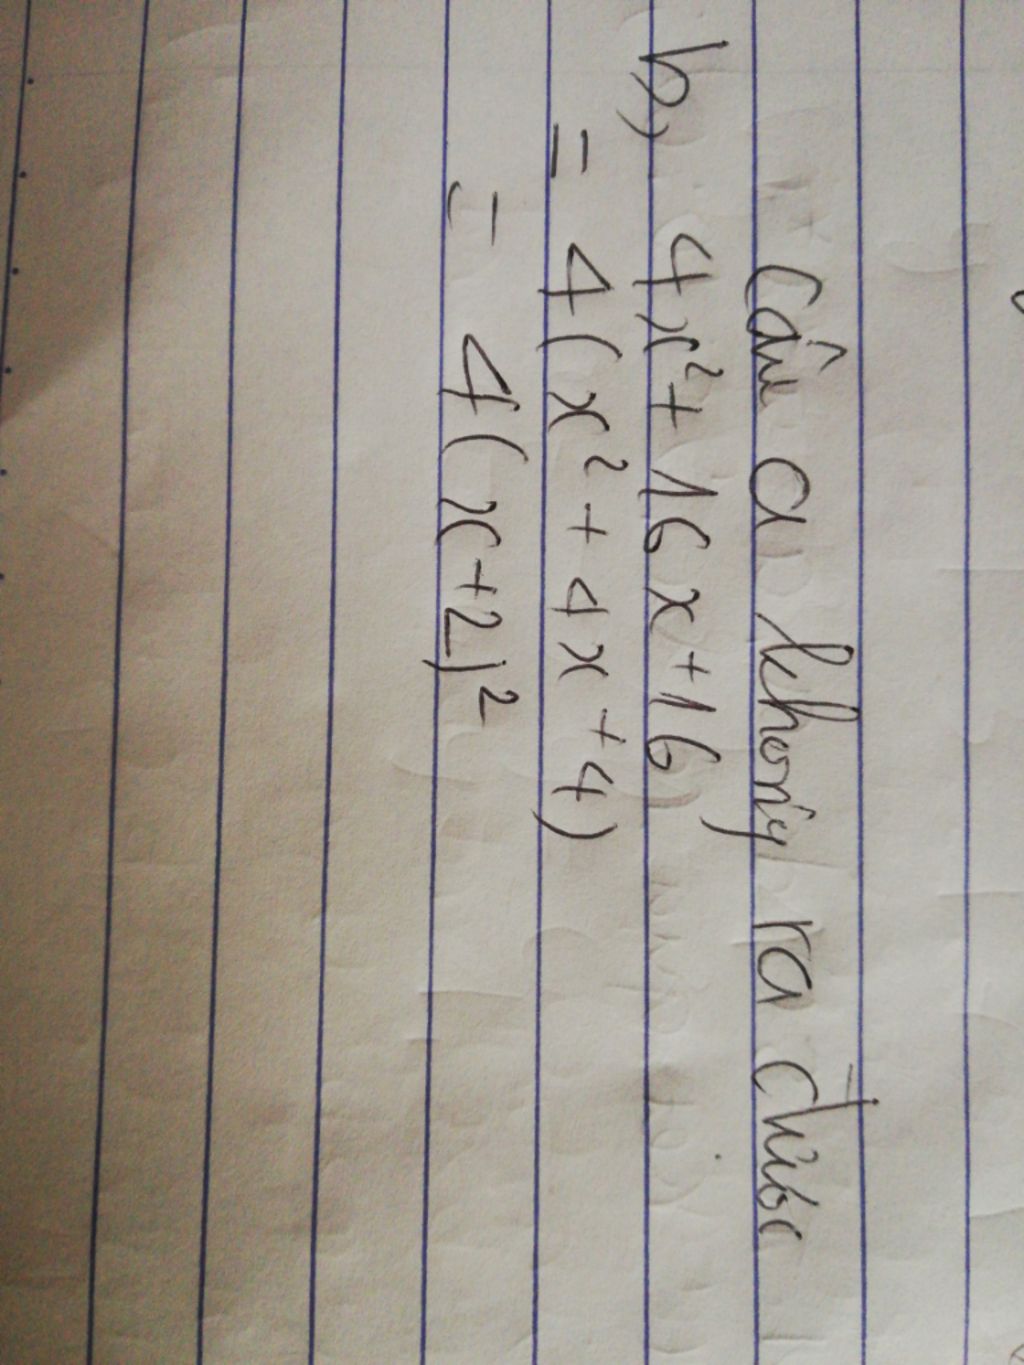 Câu a không ra được
b, 4x² + 16x + 16
= 4(x² + 4x + 4)
= 4(x+2)²